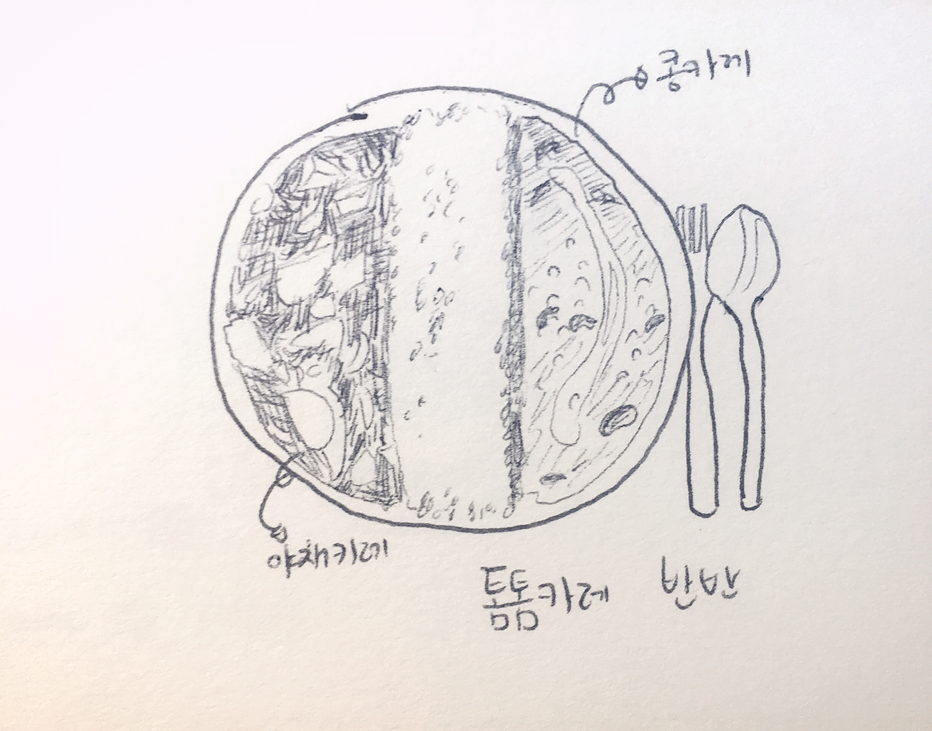 콩카레
야채카레
톰톰카레 반반